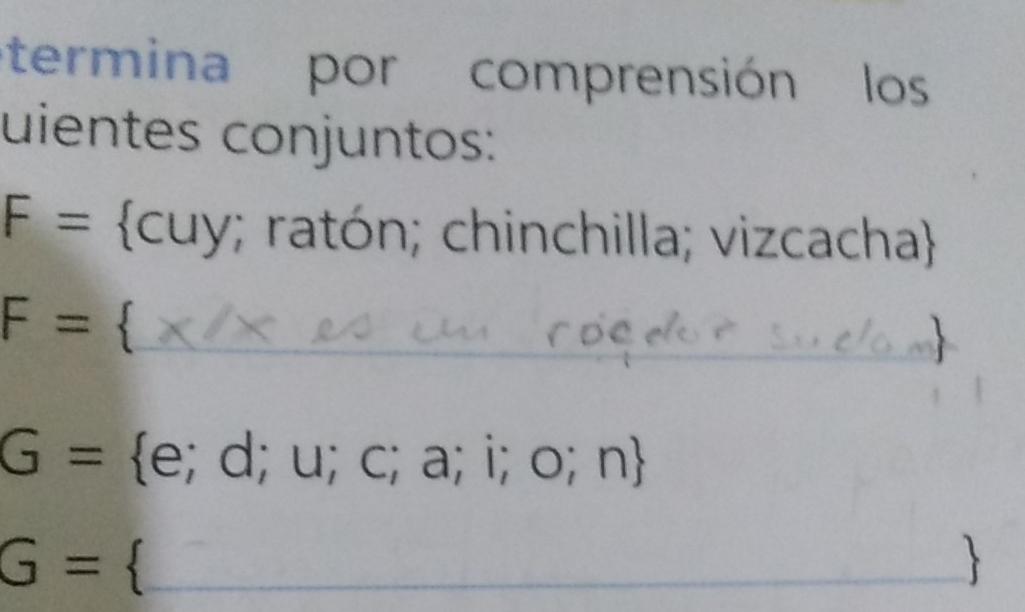 termina por comprensión los
uientes conjuntos:
F = {cuy; ratón; chinchilla; vizcacha}
F = {x/x es un roedor }
G = {e; d; u; c; a; i; o; n}
G = { }